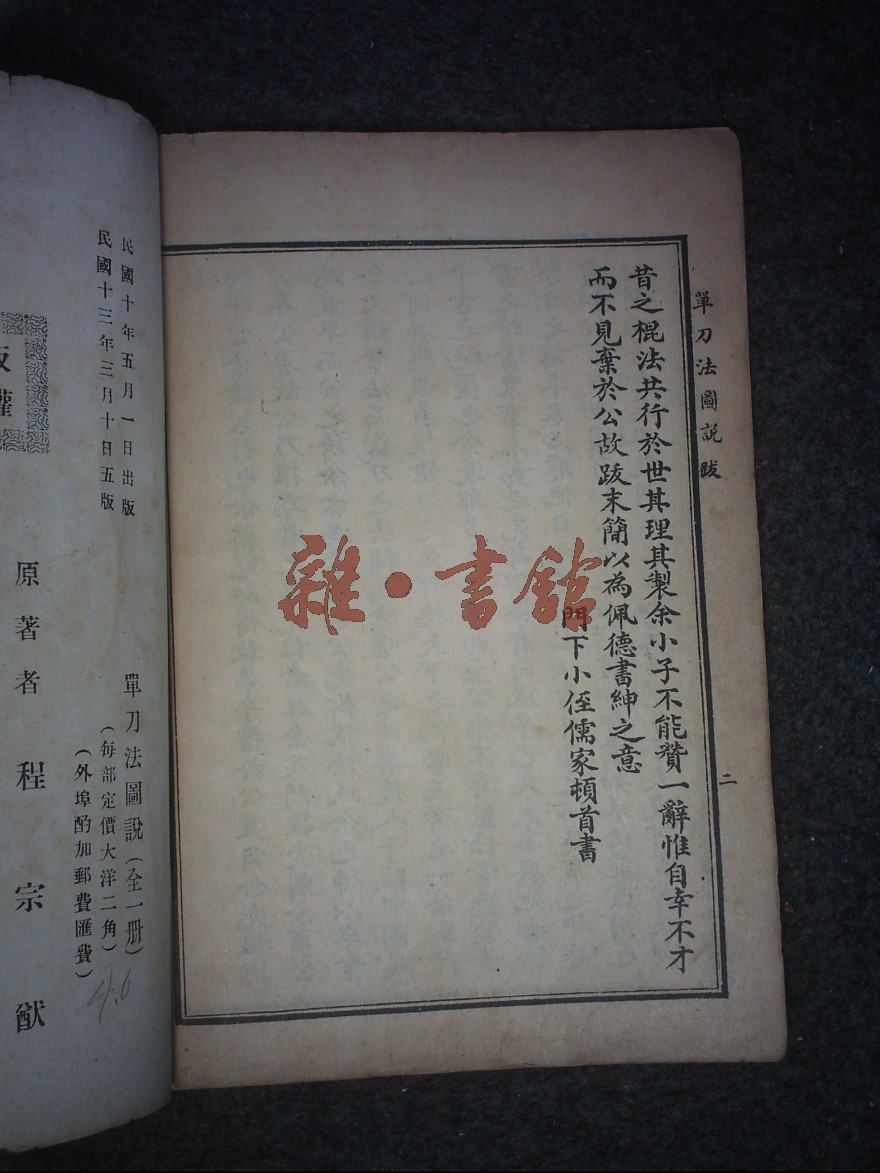 單刀法圖說 跋
二
昔之棍法共行於世其理其製余小子不能贊一辭惟自幸不才
而不見棄於公故跋末簡以為佩德書紳之意
門下小侄儒家頓首書
雜·書館
民國十年五月一日出版
民國十三年三月十日五版
單刀法圖說（全一册）
（每部定價大洋二角）
（外埠酌加郵費匯費）
4.6
原著者 程宗猷
版權